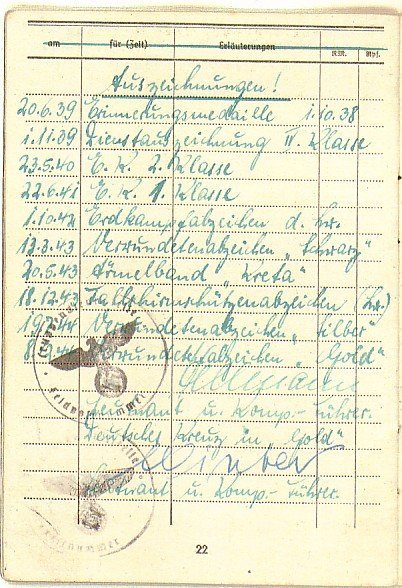 am für (Zeit) Erläuterungen RM. Rpf.
Auszeichnungen!
20.6.39 Erinnerungsmedaille 1.10.38
1.11.39 Dienstauszeichnung II. Klasse
23.5.40 E. K. 2. Klasse
22.6.41 E. K. 1. Klasse
1.10.42 Erdkampfabzeichen d. Lw.
13.3.43 Verwundetenabzeichen „Schwarz“
20.5.43 Ärmelband „Kreta“
18.12.43 Fallschirmschützenabzeichen (Lw.)
19.7.44 Verwundetenabzeichen „Silber“
8.9.44 Verwundetenabzeichen „Gold“
Leutnant u. Komp.-Führer.
Deutsches Kreuz in „Gold“
Leutnant u. Komp.-Führer.
Feldpostnummer
22